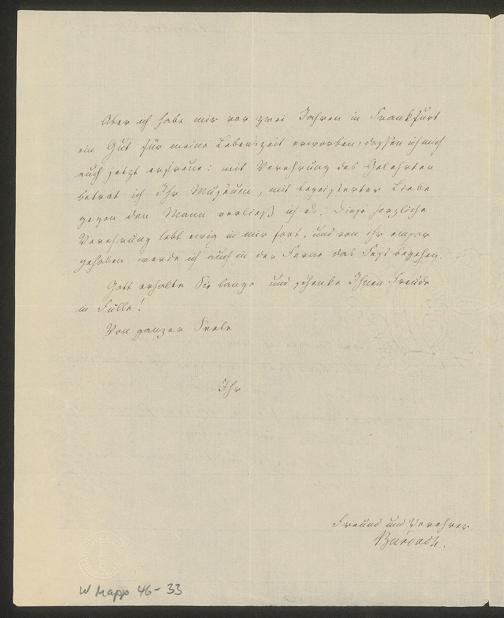 Aber ich habe mir vor zwei Jahren in Frankfurt
ein Gut für meine Lebenszeit erworben, dessen ich mich
auch jetzt erfreue: mit Verehrung des Gelehrten
betrat ich Ihr Museum, mit begeisterter Liebe
gegen den Mann verließ ich es. Diese herzliche
Verehrung lebt ewig in mir fort, und von ihr empor
gehoben werde ich auch in der Ferne das Fest begehen.
Gott erhalte Sie lange und schenke Ihnen Freude
in Fülle!
Von ganzer Seele
Ihr
Freund und Verehrer
Burdach.
W Mapp 46-33